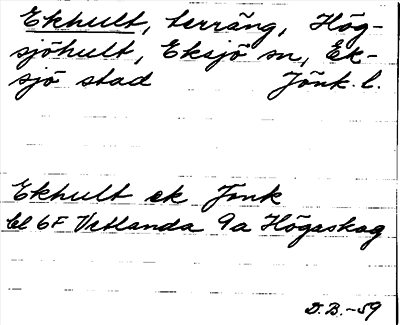 Ekhult, terräng, Hög-
sjöhult, Eksjö sn, Ek-
sjö stad Jönk. l.
Ekhult ek Jönk
bl 6F Vetlanda 9a Högaskog
D.B.-59